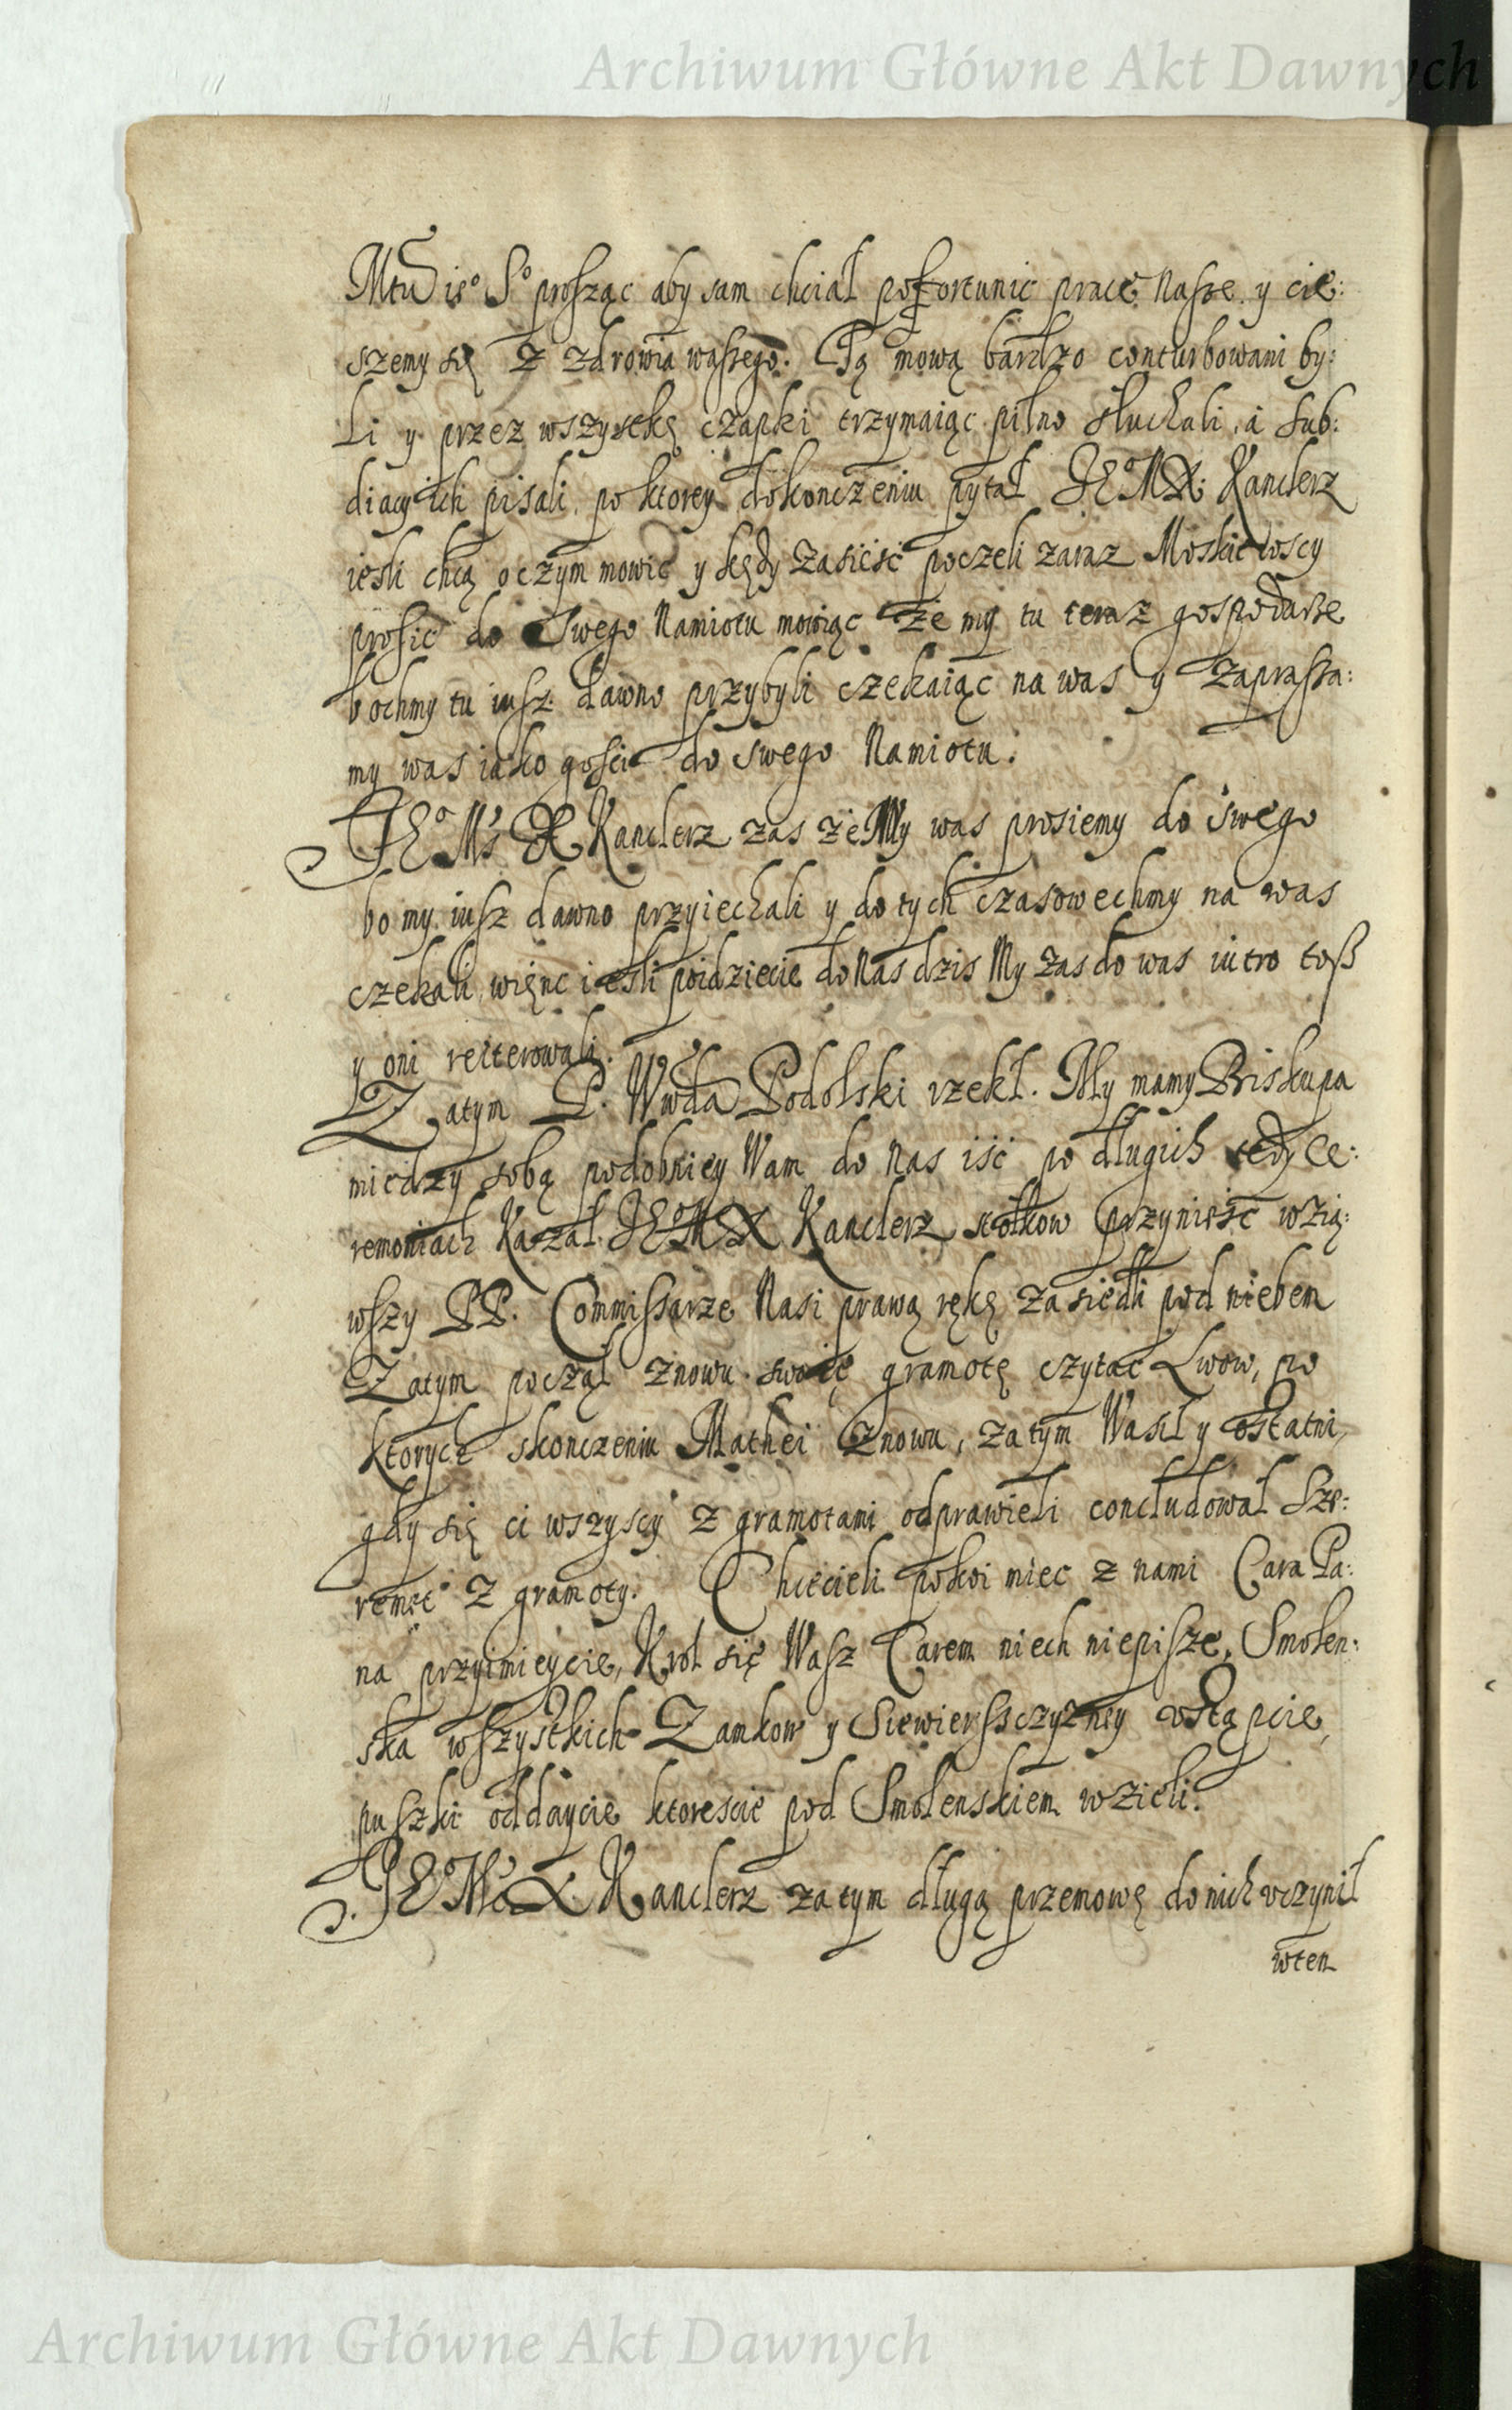 Archiwum Główne Akt Dawnych
prosząc aby sam chciał pofortunić pracę nasze y cie:
szemy się z zdrowia waszego. Tą mową bardzo conturbowani by:
li y przez wszystkę czapki trzymaiąc pilno słuchali, a sub:
diacy ich pisali, po ktorey dokonczeniu pytał JE°MX. Kanclerz
iesli chcą o czym mowić y kędy zasieść poczeli zaraz Moskiewscy
prosić do swego Namiotu mowiąc że my tu teraz gospodarze
bochmy tu iusz dawno przybyli czekaiąc na was y zaprasza:
my was iako gości do swego Namiotu.
JE°Mś X Kanclerz zas że My was prosiemy do swego
bo my iusz dawno przyiechali y do tych czasow echmy na was
czekali, więnc iesli poidziecie do Nas dzis My zas do was iutro toß
y oni reiterowali.
Zatym P. Wwda Podolski rzekł. My mamy Biskupa
miedzy sobą podobniey Wam do Nas iść po długich tedy ce:
remoniach Kazał JE°MX Kanclerz stołkow przynieść wzią:
wszy PP. Commissarze Nasi prawą rękę zasiedli pod niebem
Zatym począł znowu swoię gramotę czytac Lwow, po
ktorych skonczeniu Mathei znowu, zatym Wasil y ostatni,
gdy się ci wszyscy z gramotami odprawieli concludował Sze:
remet z gramoty. Chcecieli pokoi miec z nami Cara Pa:
na przyimieycie, Krol się Wasz Carem niech niepisze, Smolen:
ska wszystkich Zamkow y Siewierszczyzney ustąpcie,
puszki oddaycie ktorescie pod Smolenskiem wzieli.
JE°Mś X. Kanclerz zatym długą przemowę do nich uczynił
wten
Archiwum Główne Akt Dawnych